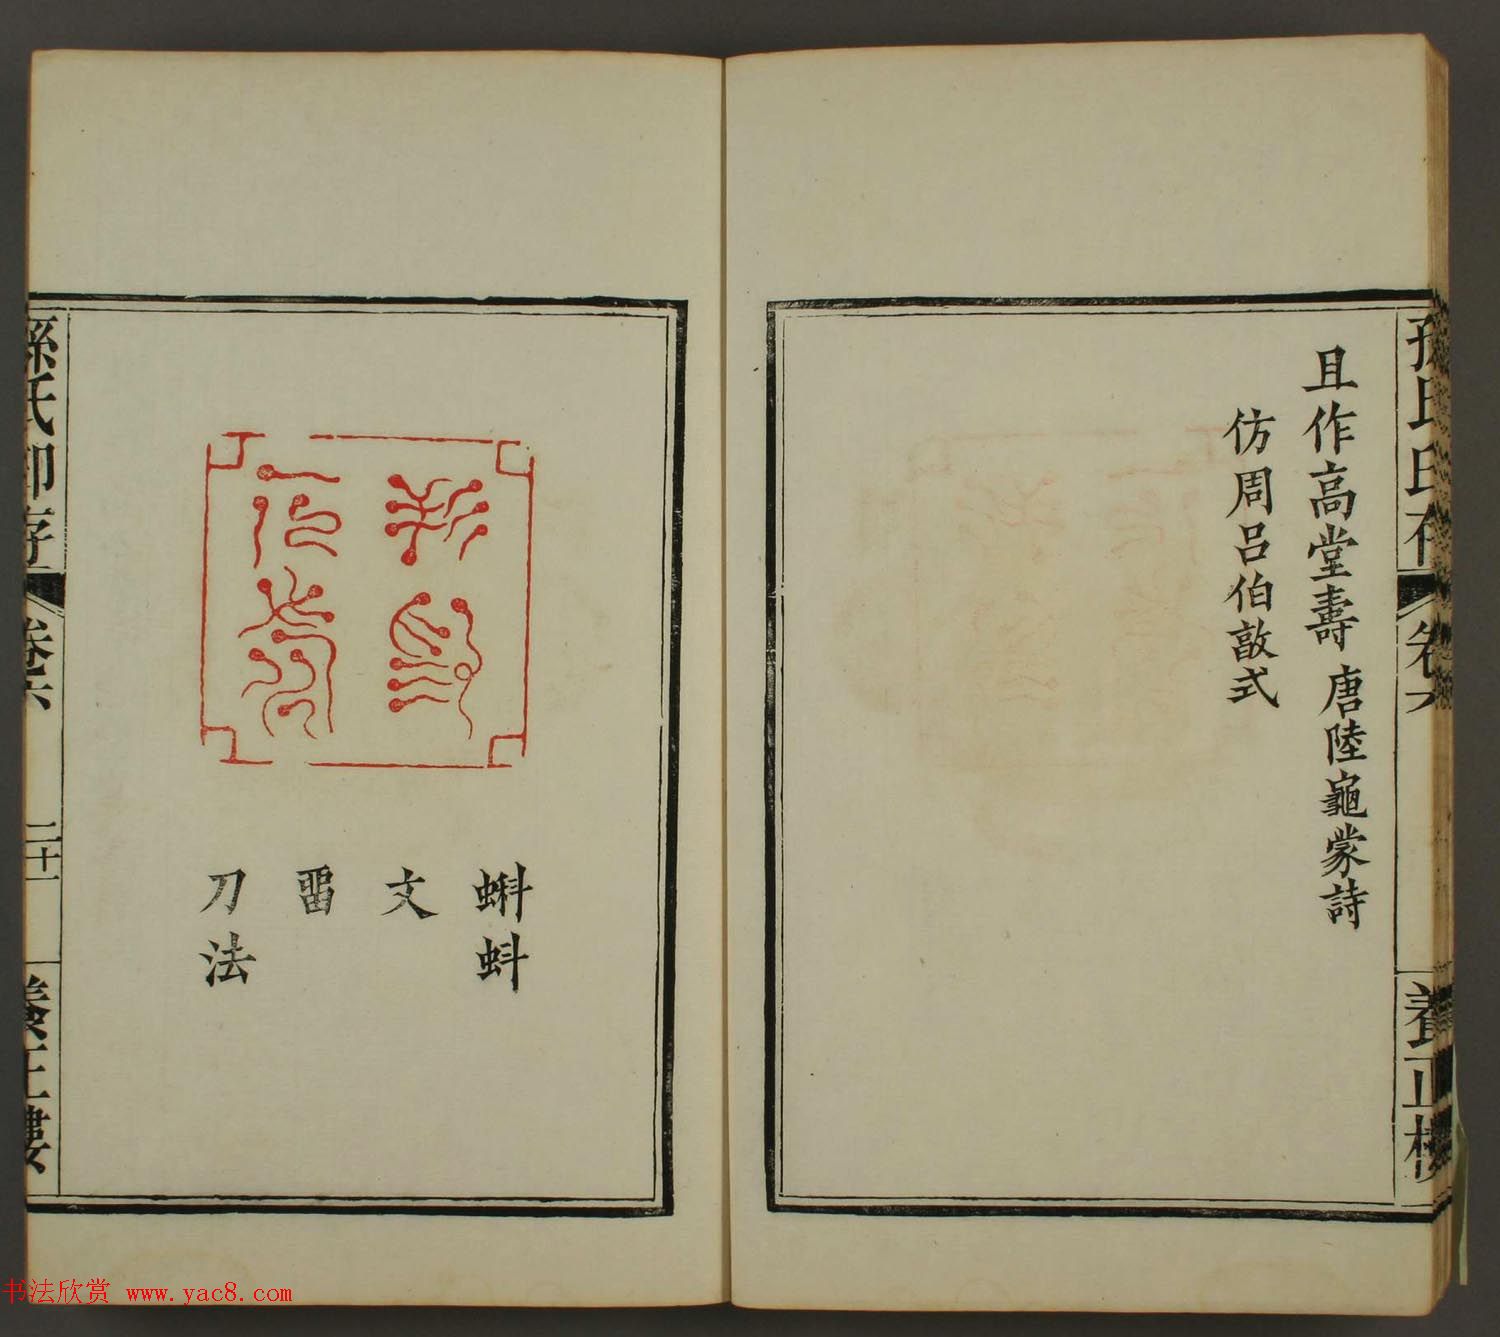 孫氏印存
卷六
養正樓
且作高堂壽 唐陸龜蒙詩
仿周呂伯敦式
蝌蚪
文
畱
刀法
孫氏印存
卷六
二十一
養正樓
书法欣赏 www.yac8.com